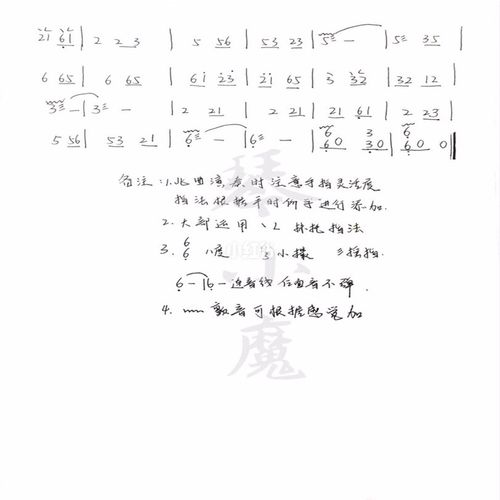 21 61 | 2 2 3 | 5 56 | 53 23 | 5 - | 5 35 |
6 65 | 6 65 | 61 23 | 21 65 | 3 32 | 32 12 |
3 - | 3 - | 2 21 | 2 21 | 21 61 | 2 23 |
5 56 | 53 21 | 6 - | 6 - | 60 30 | 60 0
备注:1.此曲演奏时注意手指灵活度
指法根据平时仰手进行添加.
2.大部运用 ヽ L 托指法
3. 6 6 八度 小撮 摇指.
6 - | 6 - 连音线 后面音不弹.
4. 颤音可根据感觉加
小红书
琴小魔